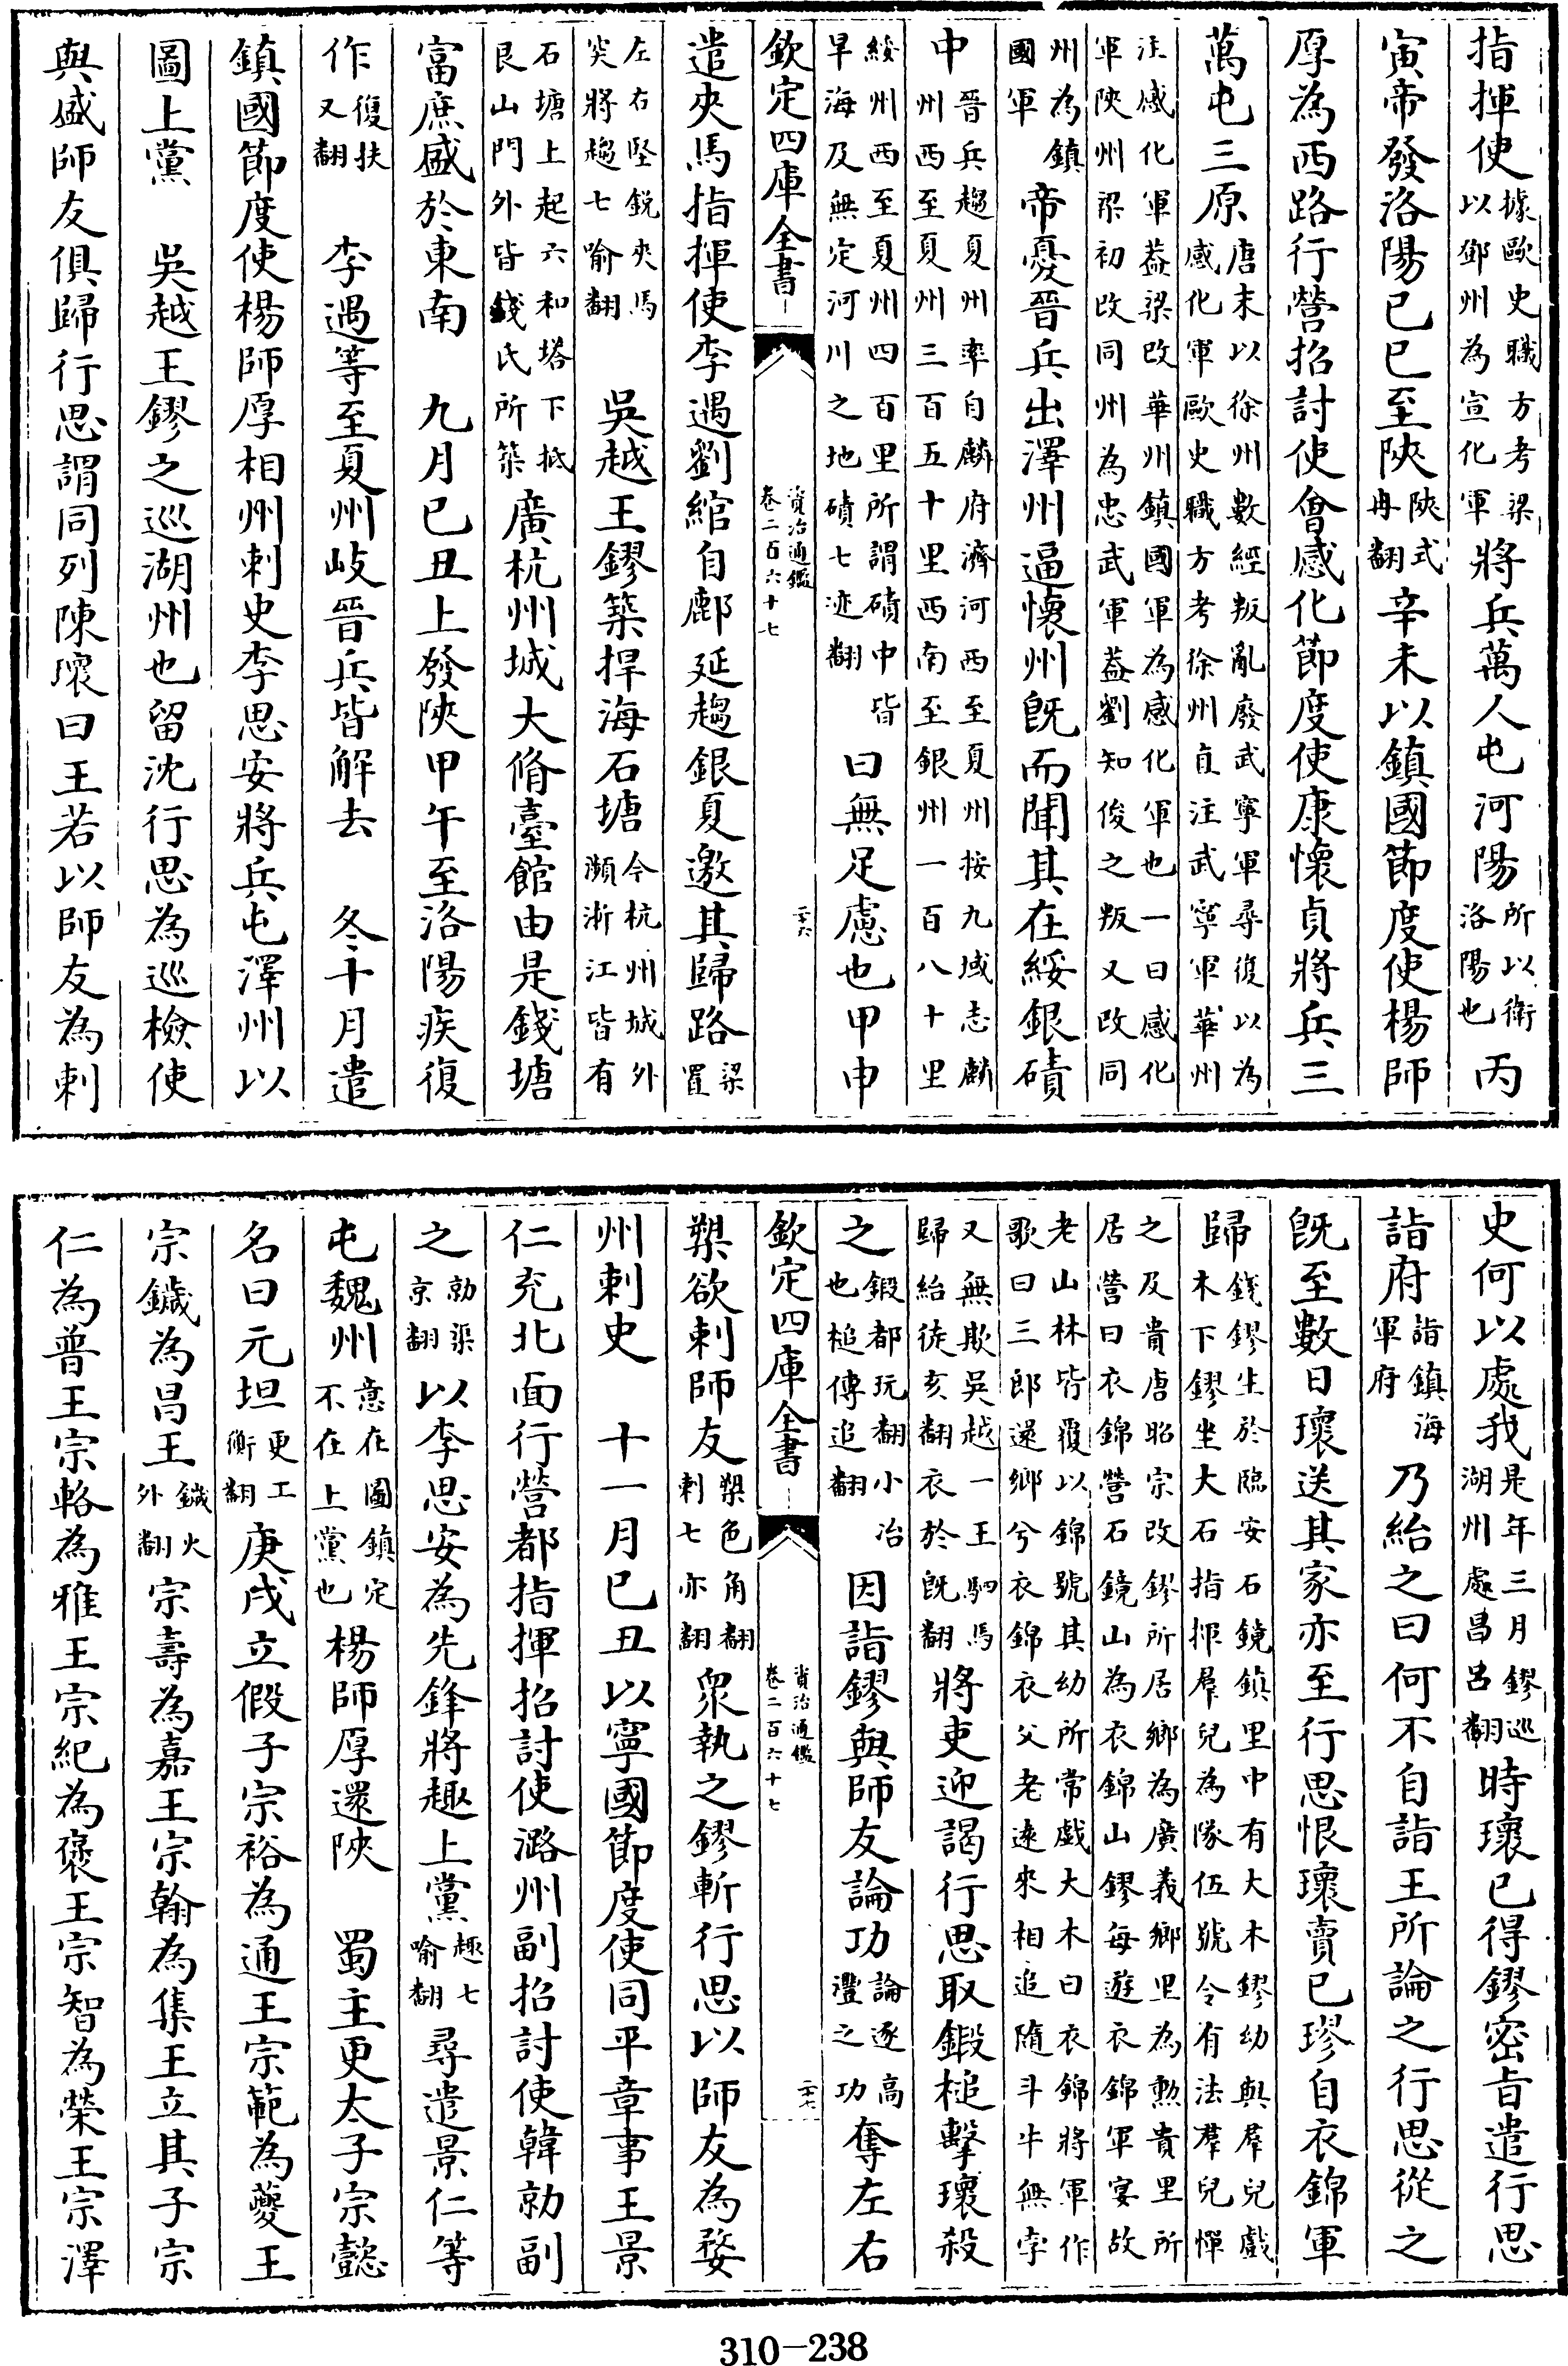 指揮使據歐史職方考梁以鄧州為宣化軍將兵萬人屯河陽所以衛洛陽也丙
寅帝發洛陽己巳至陜陜式冉翻辛未以鎮國節度使楊師
厚為西路行營招討使會感化節度使康懷貞將兵三
萬屯三原唐末以徐州數經叛亂廢武寧軍尋復以為感化軍歐史職方考徐州直注武寧軍華州
注感化軍葢梁改華州鎮國軍為感化軍也一曰感化軍陜州梁初改同州為忠武軍葢劉知俊之叛又改同
州為鎮國軍帝憂晉兵出澤州逼懷州既而聞其在綏銀磧
中晉兵趨夏州率自麟府濟河西至夏州按九域志麟州西至夏州三百五十里西南至銀州一百八十里
綏州西至夏州四百里所謂磧中皆旱海及無定河川之地磧七迹翻曰無足慮也甲申
欽定四庫全書 資治通鑑卷二百六十七 二十六
遣夾馬指揮使李遇劉綰自鄜延趨銀夏邀其歸路梁置
左右堅鋭夾馬突將趨七喻翻 吳越王鏐築捍海石塘今杭州城外瀕浙江皆有
石塘上起六和塔下抵艮山門外皆錢氏所築廣杭州城大脩臺館由是錢塘
富庶盛於東南 九月己丑上發陜甲午至洛陽疾復
作復扶又翻 李遇等至夏州岐晉兵皆解去 冬十月遣
鎮國節度使楊師厚相州刺史李思安將兵屯澤州以
圖上黨 吳越王鏐之巡湖州也留沈行思為巡檢使
與盛師友俱歸行思謂同列陳瓌曰王若以師友為刺
史何以處我是年三月鏐巡湖州處昌呂翻時瓌已得鏐密旨遣行思
詣府詣鎮海軍府乃紿之曰何不自詣王所論之行思從之
既至數日瓌送其家亦至行思恨瓌賣己璆自衣錦軍
歸錢鏐生於臨安石鏡鎮里中有大木鏐幼與羣兒戲木下鏐坐大石指揮羣兒為隊伍號令有法羣兒憚
之及貴唐昭宗改鏐所居鄉為廣義鄉里為勲貴里所居營曰衣錦營石鏡山為衣錦山鏐每遊衣錦軍宴故
老山林皆覆以錦號其幼所常戲大木曰衣錦將軍作歌曰三郎還鄉兮衣錦衣父老遠來相追隨斗牛無孛
又無欺吳越一王駟馬歸紿徒亥翻衣於既翻將吏迎謁行思取鍛槌擊瓌殺
之鍛都玩翻小冶也槌傳追翻因詣鏐與師友論功論逐高灃之功奪左右
欽定四庫全書 資治通鑑卷二百六十七 二十七
槊欲刺師友槊色角翻刺七亦翻衆執之鏐斬行思以師友為婺
州刺史 十一月己丑以寧國節度使同平章事王景
仁充北面行營都指揮招討使潞州副招討使韓勍副
之勍渠京翻以李思安為先鋒將趣上黨趣七喻翻尋遣景仁等
屯魏州意在圖鎮定不在上黨也楊師厚還陜 蜀主更太子宗懿
名曰元坦更工衡翻庚戌立假子宗裕為通王宗範為夔王
宗鐬為昌王鐬火外翻宗壽為嘉王宗翰為集王立其子宗
仁為普王宗輅為雅王宗紀為褒王宗智為榮王宗澤
310-238